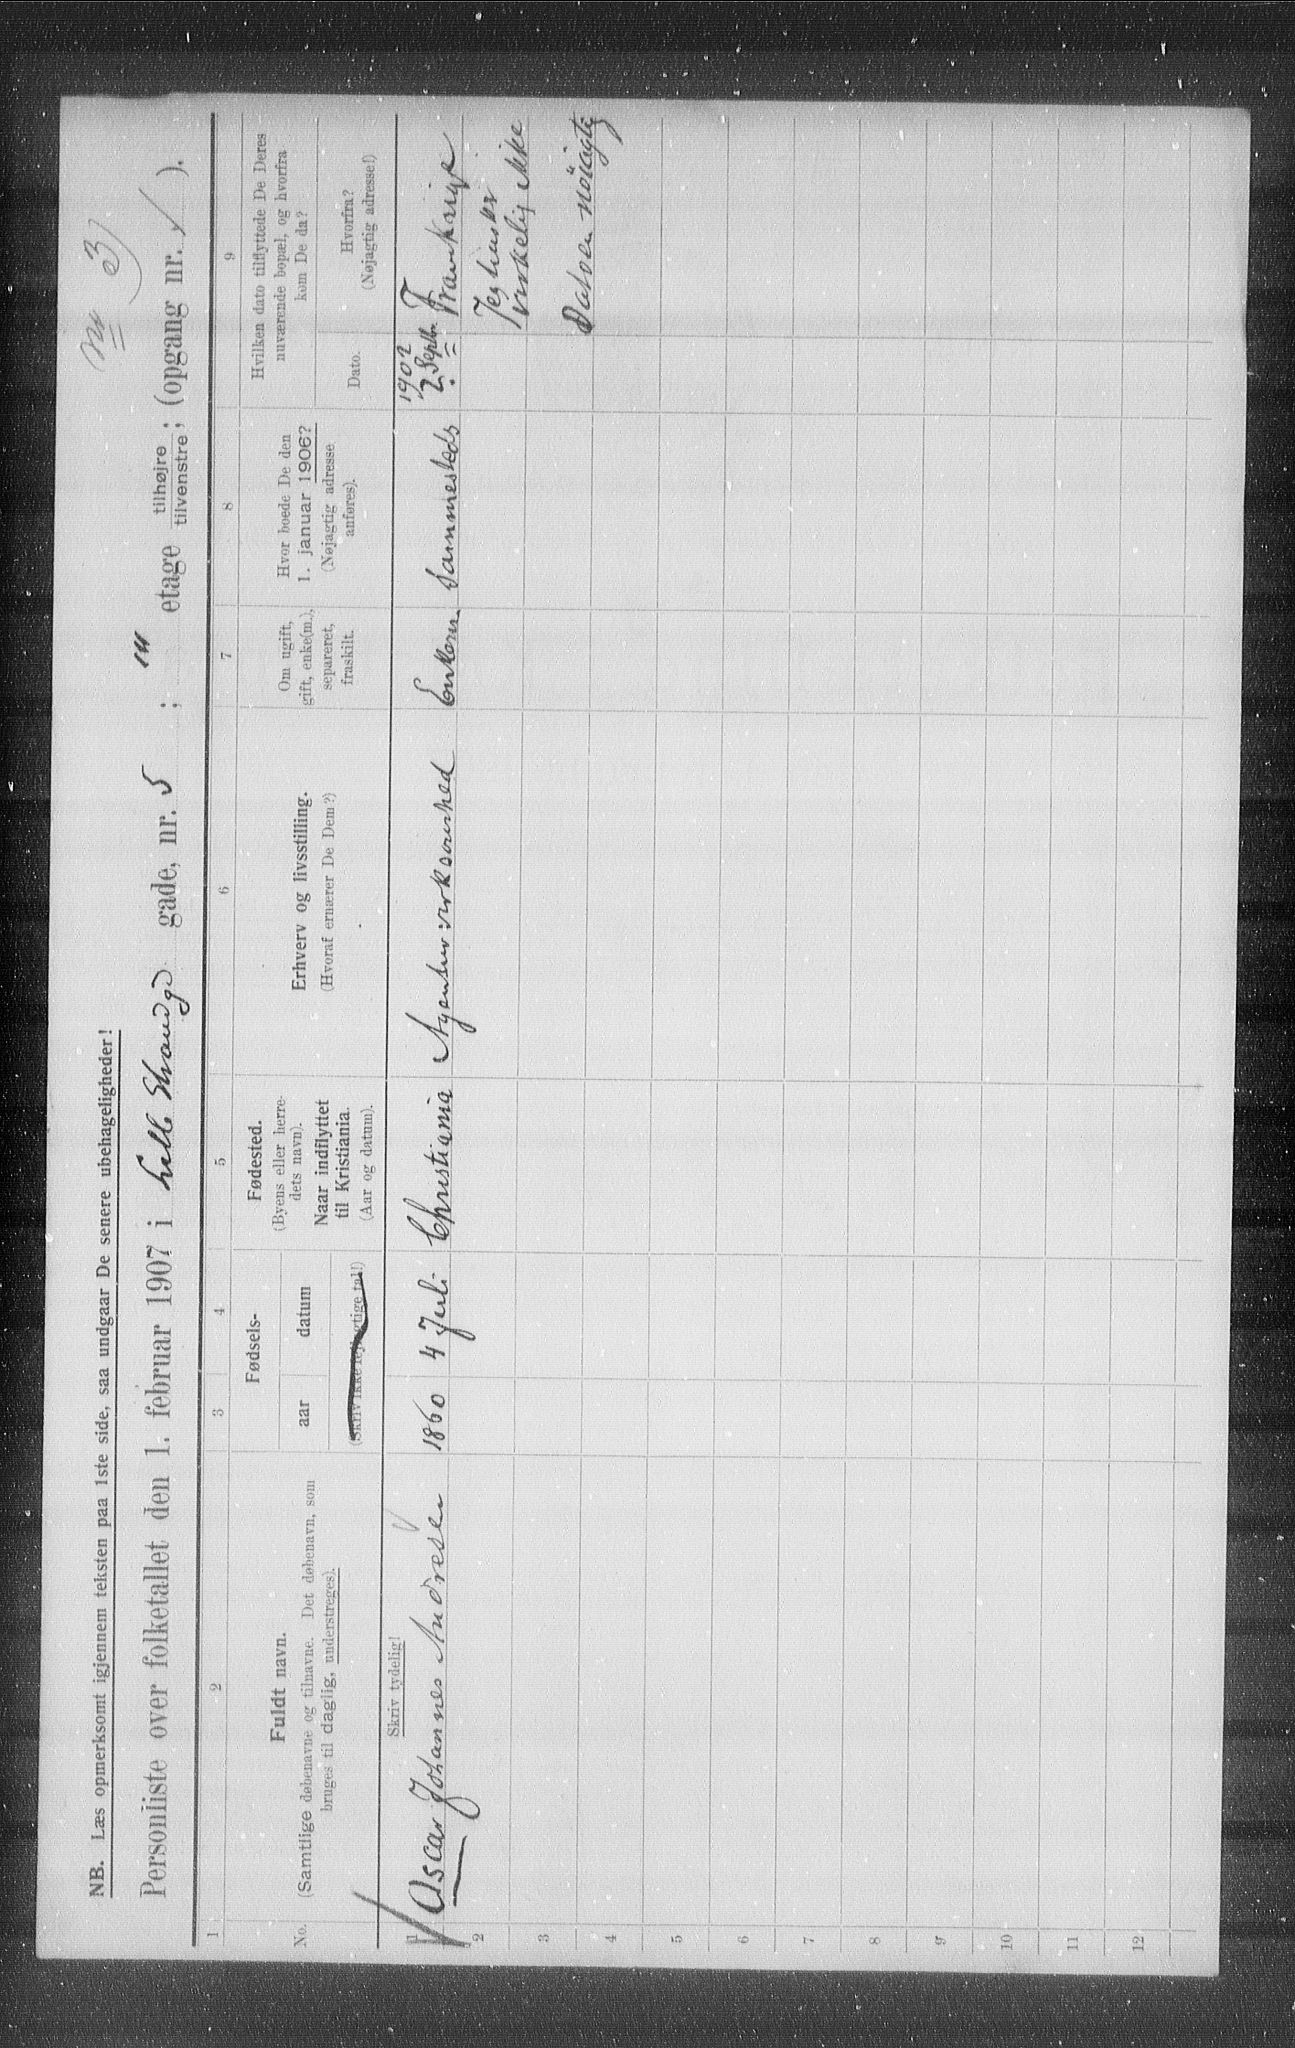 Nr 3)
NB. Læs opmerksomt igjennem teksten paa 1ste side, saa undgaar De senere ubehageligheder!
Personliste over folketallet den 1. februar 1907 i Lille Strandgd gade, nr. 5 ; etage tilhøjre / tilvenstre ; (opgang nr. / ).
1 2 3 4 5 6 7 8 9
No.
Fuldt navn.
(Samtlige døbenavne og tilnavne. Det døbenavn, som
bruges til daglig, understreges).
Fødsels-
aar datum
(Skriv ikke feilagtige tal!)
Fødested.
(Byens eller herre-
dets navn).
Naar indflyttet
til Kristiania.
(Aar og datum).
Erhverv og livsstilling.
(Hvoraf ernærer De Dem?)
Om ugift,
gift, enke(m.),
separeret,
fraskilt.
Hvor boede De den
1. januar 1906?
(Nøjagtig adresse
anføres).
Hvilken dato tilflyttede De Deres
nuværende bopæl, og hvorfra
kom De da?
Dato.
Hvorfra?
(Nøjagtig adresse!)
Skriv tydelig!
1 Oscar Johannes Andresen 1860 4 Juli Christiania Agenturvirksomhed Enkem. Sammesteds 1902 2 Septbr Frankrige
2 Jeg husker
virkelig ikke
3 Datoen nöiagtig
4
5
6
7
8
9
10
11
12